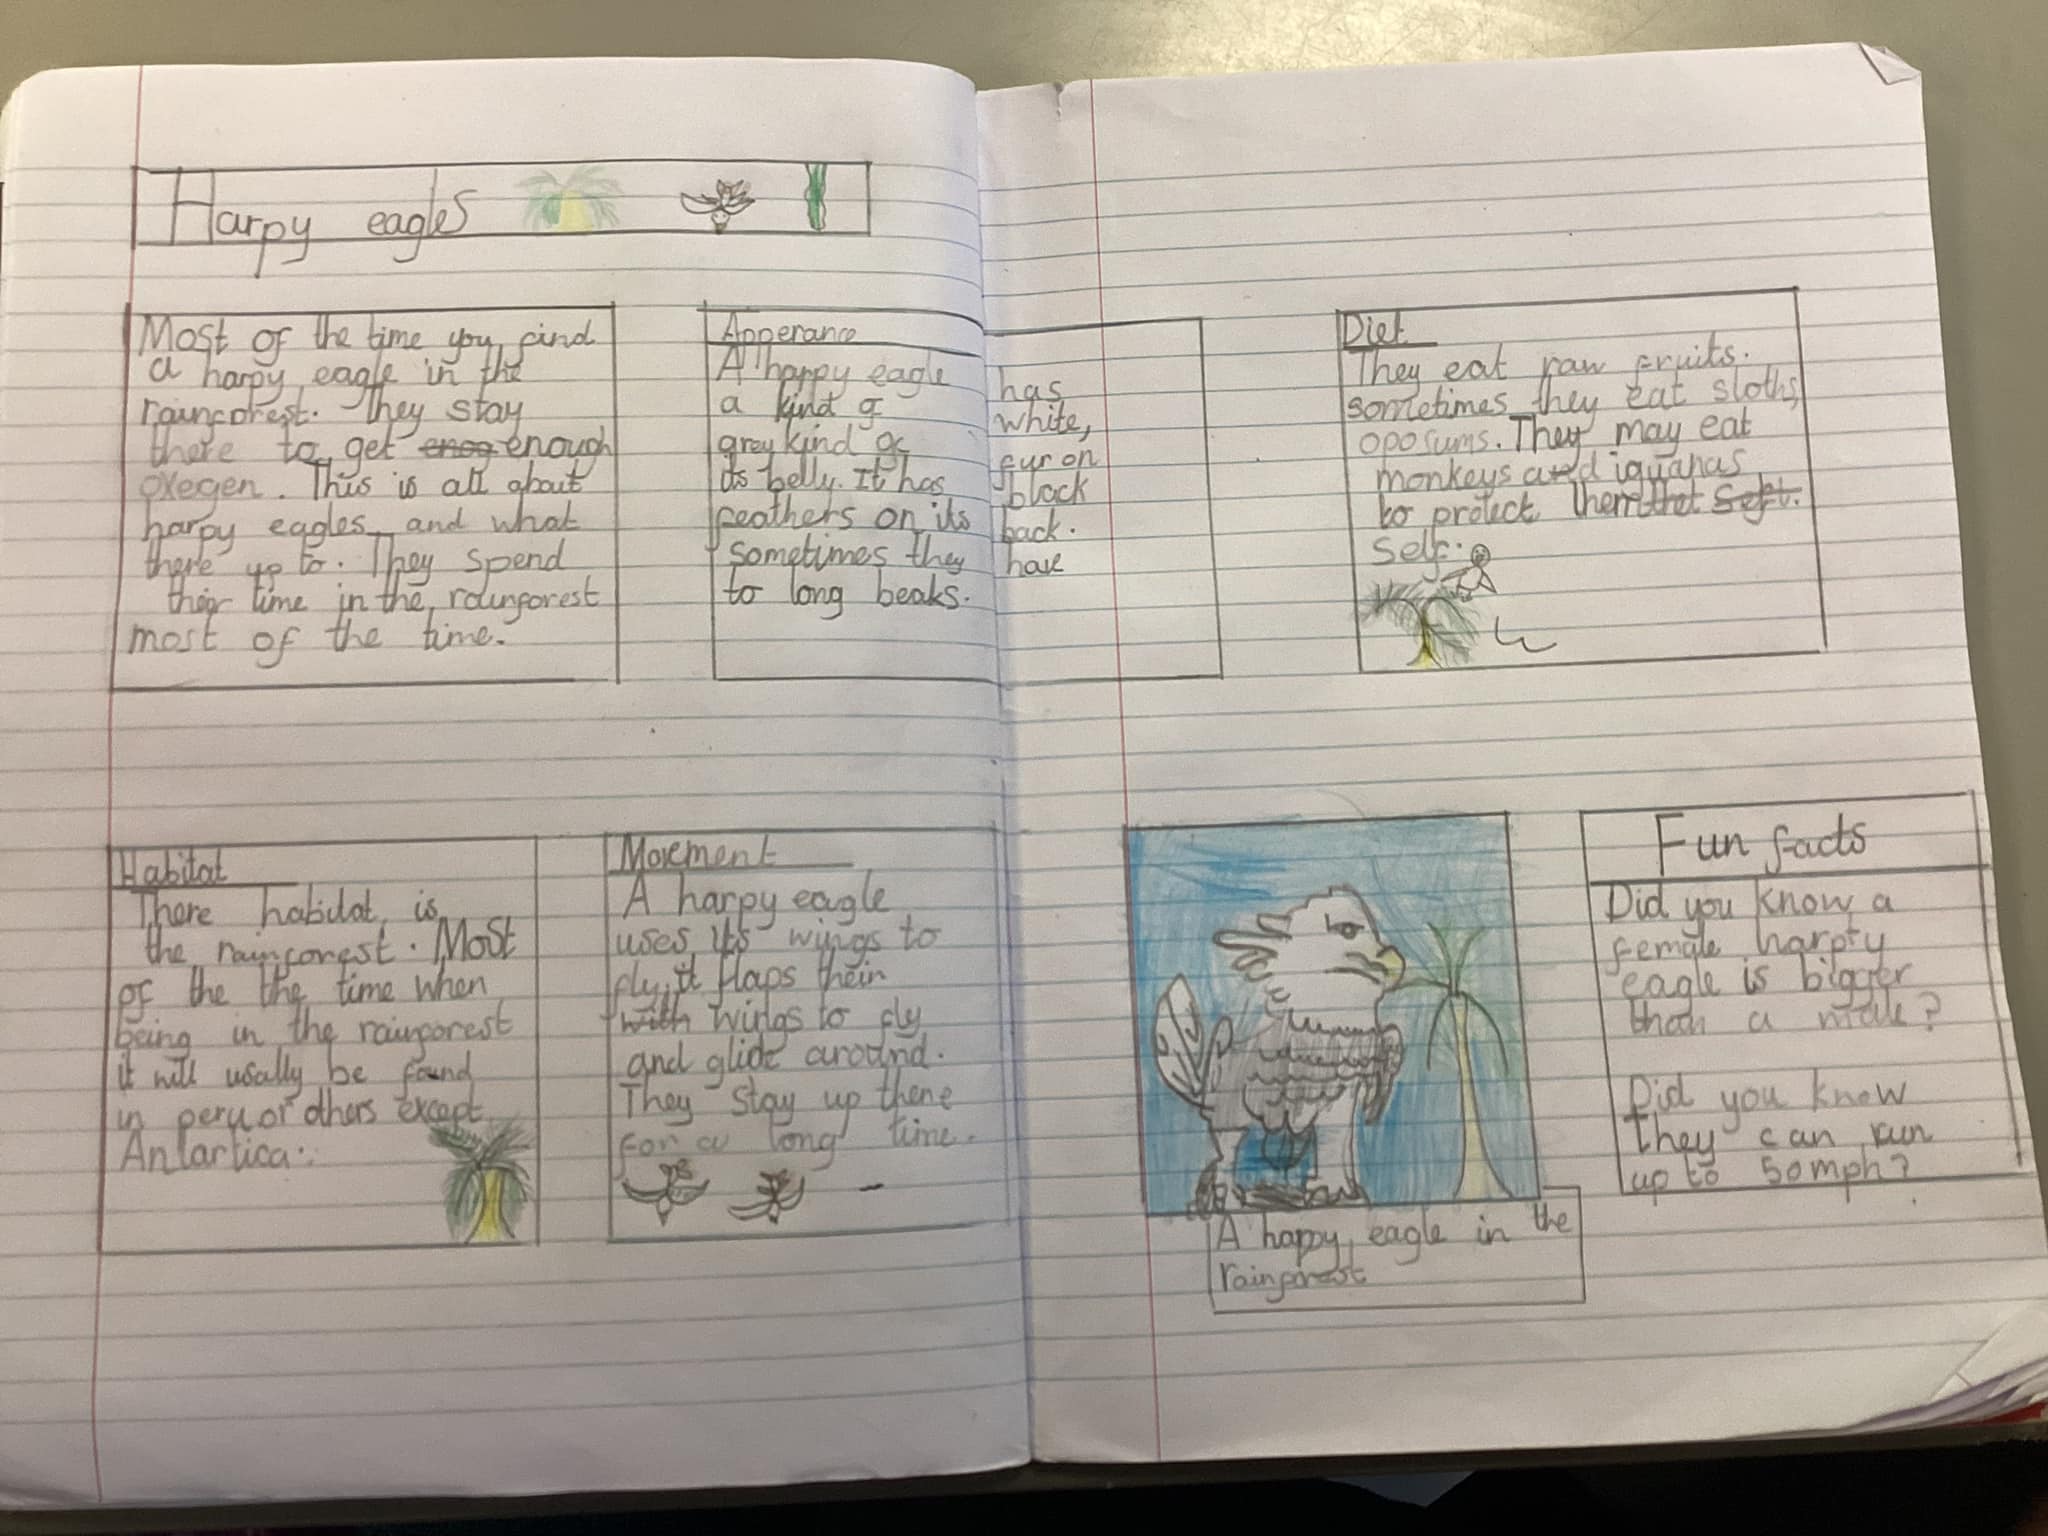 Harpy eagles
Most of the time you find
a harpy eagle in the
rainforest. They stay
there to get enog enough
oxegen. This is all about
harpy eagles and what
there up to. They spend
their time in the rainforest
most of the time.
Apperance
A happy eagle has
a kind of white,
grey kind of fur on
its belly. It has black
feathers on its back.
sometimes they have
to long beaks.
Diet
They eat raw fruits.
sometimes they eat sloths,
oposums. They may eat
monkeys and iguanas
to protect them
self.
Habitat
There habitat is
the rainforest. Most
of the the time when
being in the rainforest
it will usally be found
in peru or others except
Antartica.
Movement
A harpy eagle
uses its wings to
fly, it flaps their
with wings to fly
and glide around.
They stay up there
for a long time.
A happy eagle in the
rainforest
Fun facts
Did you know a
female harpty
eagle is bigger
than a male?
Did you know
they can run
up to 50mph?